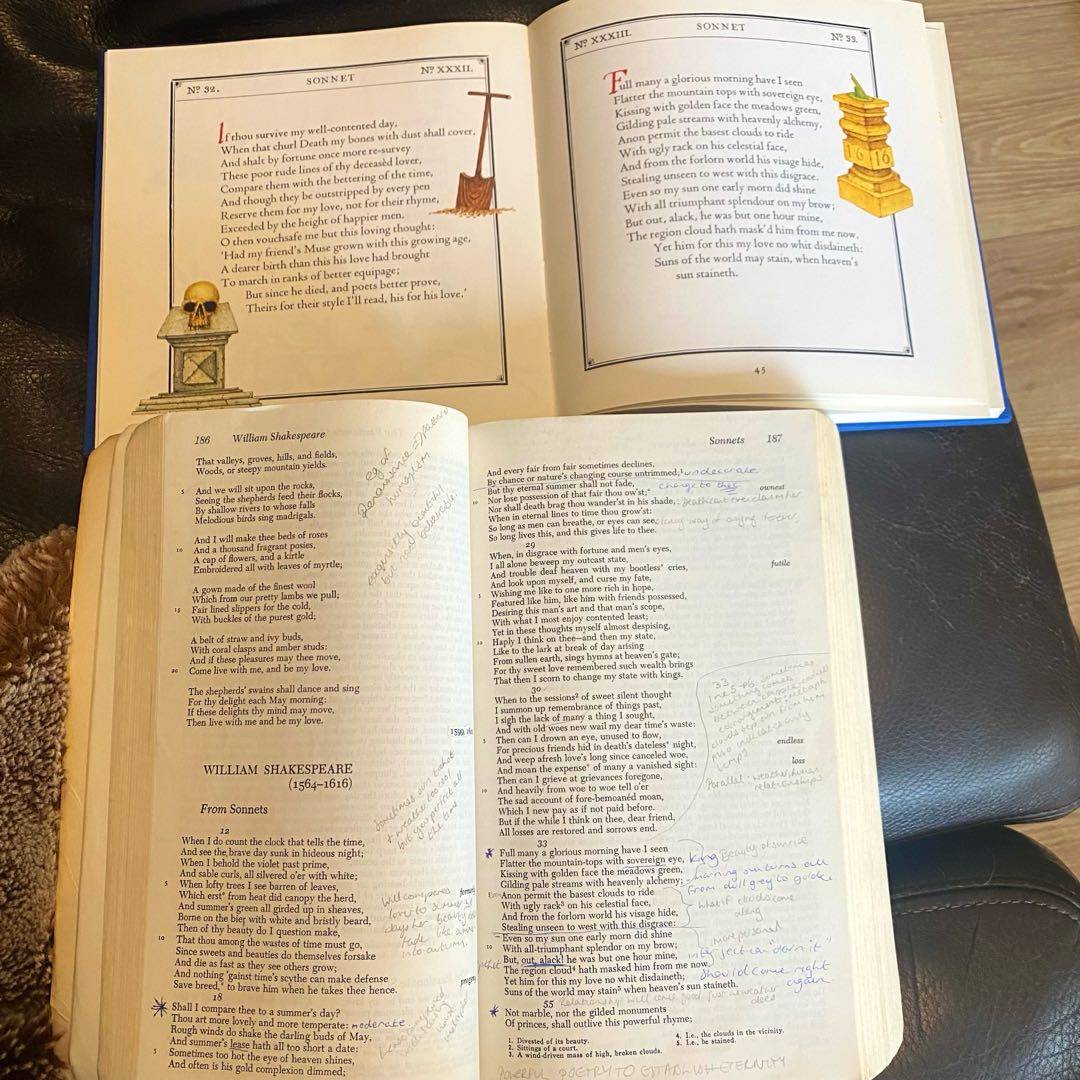 Nº 32.
SONNET
Nº XXXII.
If thou survive my well-contented day,
When that churl Death my bones with dust shall cover,
And shalt by fortune once more re-survey
These poor rude lines of thy deceasèd lover,
Compare them with the bettering of the time,
And though they be outstripped by every pen
Reserve them for my love, not for their rhyme,
Exceeded by the height of happier men.
O then vouchsafe me but this loving thought:
'Had my friend's Muse grown with this growing age,
A dearer birth than this his love had brought
To march in ranks of better equipage;
But since he died, and poets better prove,
Theirs for their style I'll read, his for his love.'
Nº XXXIII.
SONNET
Nº 33.
Full many a glorious morning have I seen
Flatter the mountain tops with sovereign eye,
Kissing with golden face the meadows green,
Gilding pale streams with heavenly alchemy,
Anon permit the basest clouds to ride
With ugly rack on his celestial face,
And from the forlorn world his visage hide,
Stealing unseen to west with this disgrace.
Even so my sun one early morn did shine
With all triumphant splendour on my brow;
But out, alack, he was but one hour mine,
The region cloud hath mask'd him from me now.
Yet him for this my love no whit disdaineth:
Suns of the world may stain, when heaven's
sun staineth.
1616
45
186 William Shakespeare
That valleys, groves, hills, and fields,
Woods, or steepy mountain yields.
5 And we will sit upon the rocks,
Seeing the shepherds feed their flocks,
By shallow rivers to whose falls
Melodious birds sing madrigals.
And I will make thee beds of roses
10 And a thousand fragrant posies,
A cap of flowers, and a kirtle
Embroidered all with leaves of myrtle;
A gown made of the finest wool
Which from our pretty lambs we pull;
15 Fair lined slippers for the cold,
With buckles of the purest gold;
A belt of straw and ivy buds,
With coral clasps and amber studs:
And if these pleasures may thee move,
20 Come live with me, and be my love.
The shepherds' swains shall dance and sing
For thy delight each May morning:
If these delights thy mind may move,
Then live with me and be my love.
1599,
eg of
Renaissance
humanism
WILLIAM SHAKESPEARE
(1564–1616)
From Sonnets
12
When I do count the clock that tells the time,
And see the brave day sunk in hideous night;
When I behold the violet past prime,
And sable curls, all silvered o'er with white;
5 When lofty trees I see barren of leaves,
Which erst* from heat did canopy the herd,
And summer's green all girded up in sheaves,
Borne on the bier with white and bristly beard,
Then of thy beauty do I question make,
10 That thou among the wastes of time must go,
Since sweets and beauties do themselves forsake
And die as fast as they see others grow;
And nothing 'gainst time's scythe can make defense
Save breed,* to brave him when he takes thee hence.
18
Shall I compare thee to a summer's day?
Thou art more lovely and more temperate: moderate
Rough winds do shake the darling buds of May,
And summer's lease hath all too short a date:
5 Sometimes too hot the eye of heaven shines,
And often is his gold complexion dimmed;
Sonnets 187
And every fair from fair sometimes declines,
By chance or nature's changing course untrimmed;¹ undecorate
But thy eternal summer shall not fade, change to thee
10 Nor lose possession of that fair thou ow'st;* ownest
Nor shall death brag thou wander'st in his shade,
When in eternal lines to time thou grow'st:
So long as men can breathe, or eyes can see, way of saying forever
So long lives this, and this gives life to thee.
29
When, in disgrace with fortune and men's eyes,
I all alone beweep my outcast state,
And trouble deaf heaven with my bootless* cries, futile
And look upon myself, and curse my fate,
5 Wishing me like to one more rich in hope,
Featured like him, like him with friends possessed,
Desiring this man's art and that man's scope,
With what I most enjoy contented least;
Yet in these thoughts myself almost despising,
10 Haply I think on thee—and then my state,
Like to the lark at break of day arising
From sullen earth, sings hymns at heaven's gate;
For thy sweet love remembered such wealth brings
That then I scorn to change my state with kings.
30
When to the sessions² of sweet silent thought
I summon up remembrance of things past,
I sigh the lack of many a thing I sought,
And with old woes new wail my dear time's waste:
5 Then can I drown an eye, unused to flow,
For precious friends hid in death's dateless* night, endless
And weep afresh love's long since canceled woe,
And moan the expense* of many a vanished sight: loss
Then can I grieve at grievances foregone,
10 And heavily from woe to woe tell o'er
The sad account of fore-bemoanéd moan,
Which I new pay as if not paid before.
But if the while I think on thee, dear friend,
All losses are restored and sorrows end.
Parallel: weather, human
relationships
33
Full many a glorious morning have I seen
Flatter the mountain-tops with sovereign eye, King Beauty of sunrise
Kissing with golden face the meadows green,
Gilding pale streams with heavenly alchemy; morning sun turns all
from dull grey to golden
Anon permit the basest clouds to ride
With ugly rack³ on his celestial face, what if clouds come
along
And from the forlorn world his visage hide,
Stealing unseen to west with this disgrace:
Even so my sun one early morn did shine more personal
10 With all-triumphant splendor on my brow;
But, out, alack! he was but one hour mine, interjection "darn it"
The region cloud⁴ hath masked him from me now.
Yet him for this my love no whit disdaineth; should come right
again
Suns of the world may stain⁵ when heaven's sun staineth.
55
Not marble, nor the gilded monuments
Of princes, shall outlive this powerful rhyme;
1. Divested of its beauty.
2. Sittings of a court.
3. A wind-driven mass of high, broken clouds.
4. I.e., the clouds in the vicinity.
5. I.e., be stained.
POWERFUL POETRY TO ESTABLISH ETERNITY